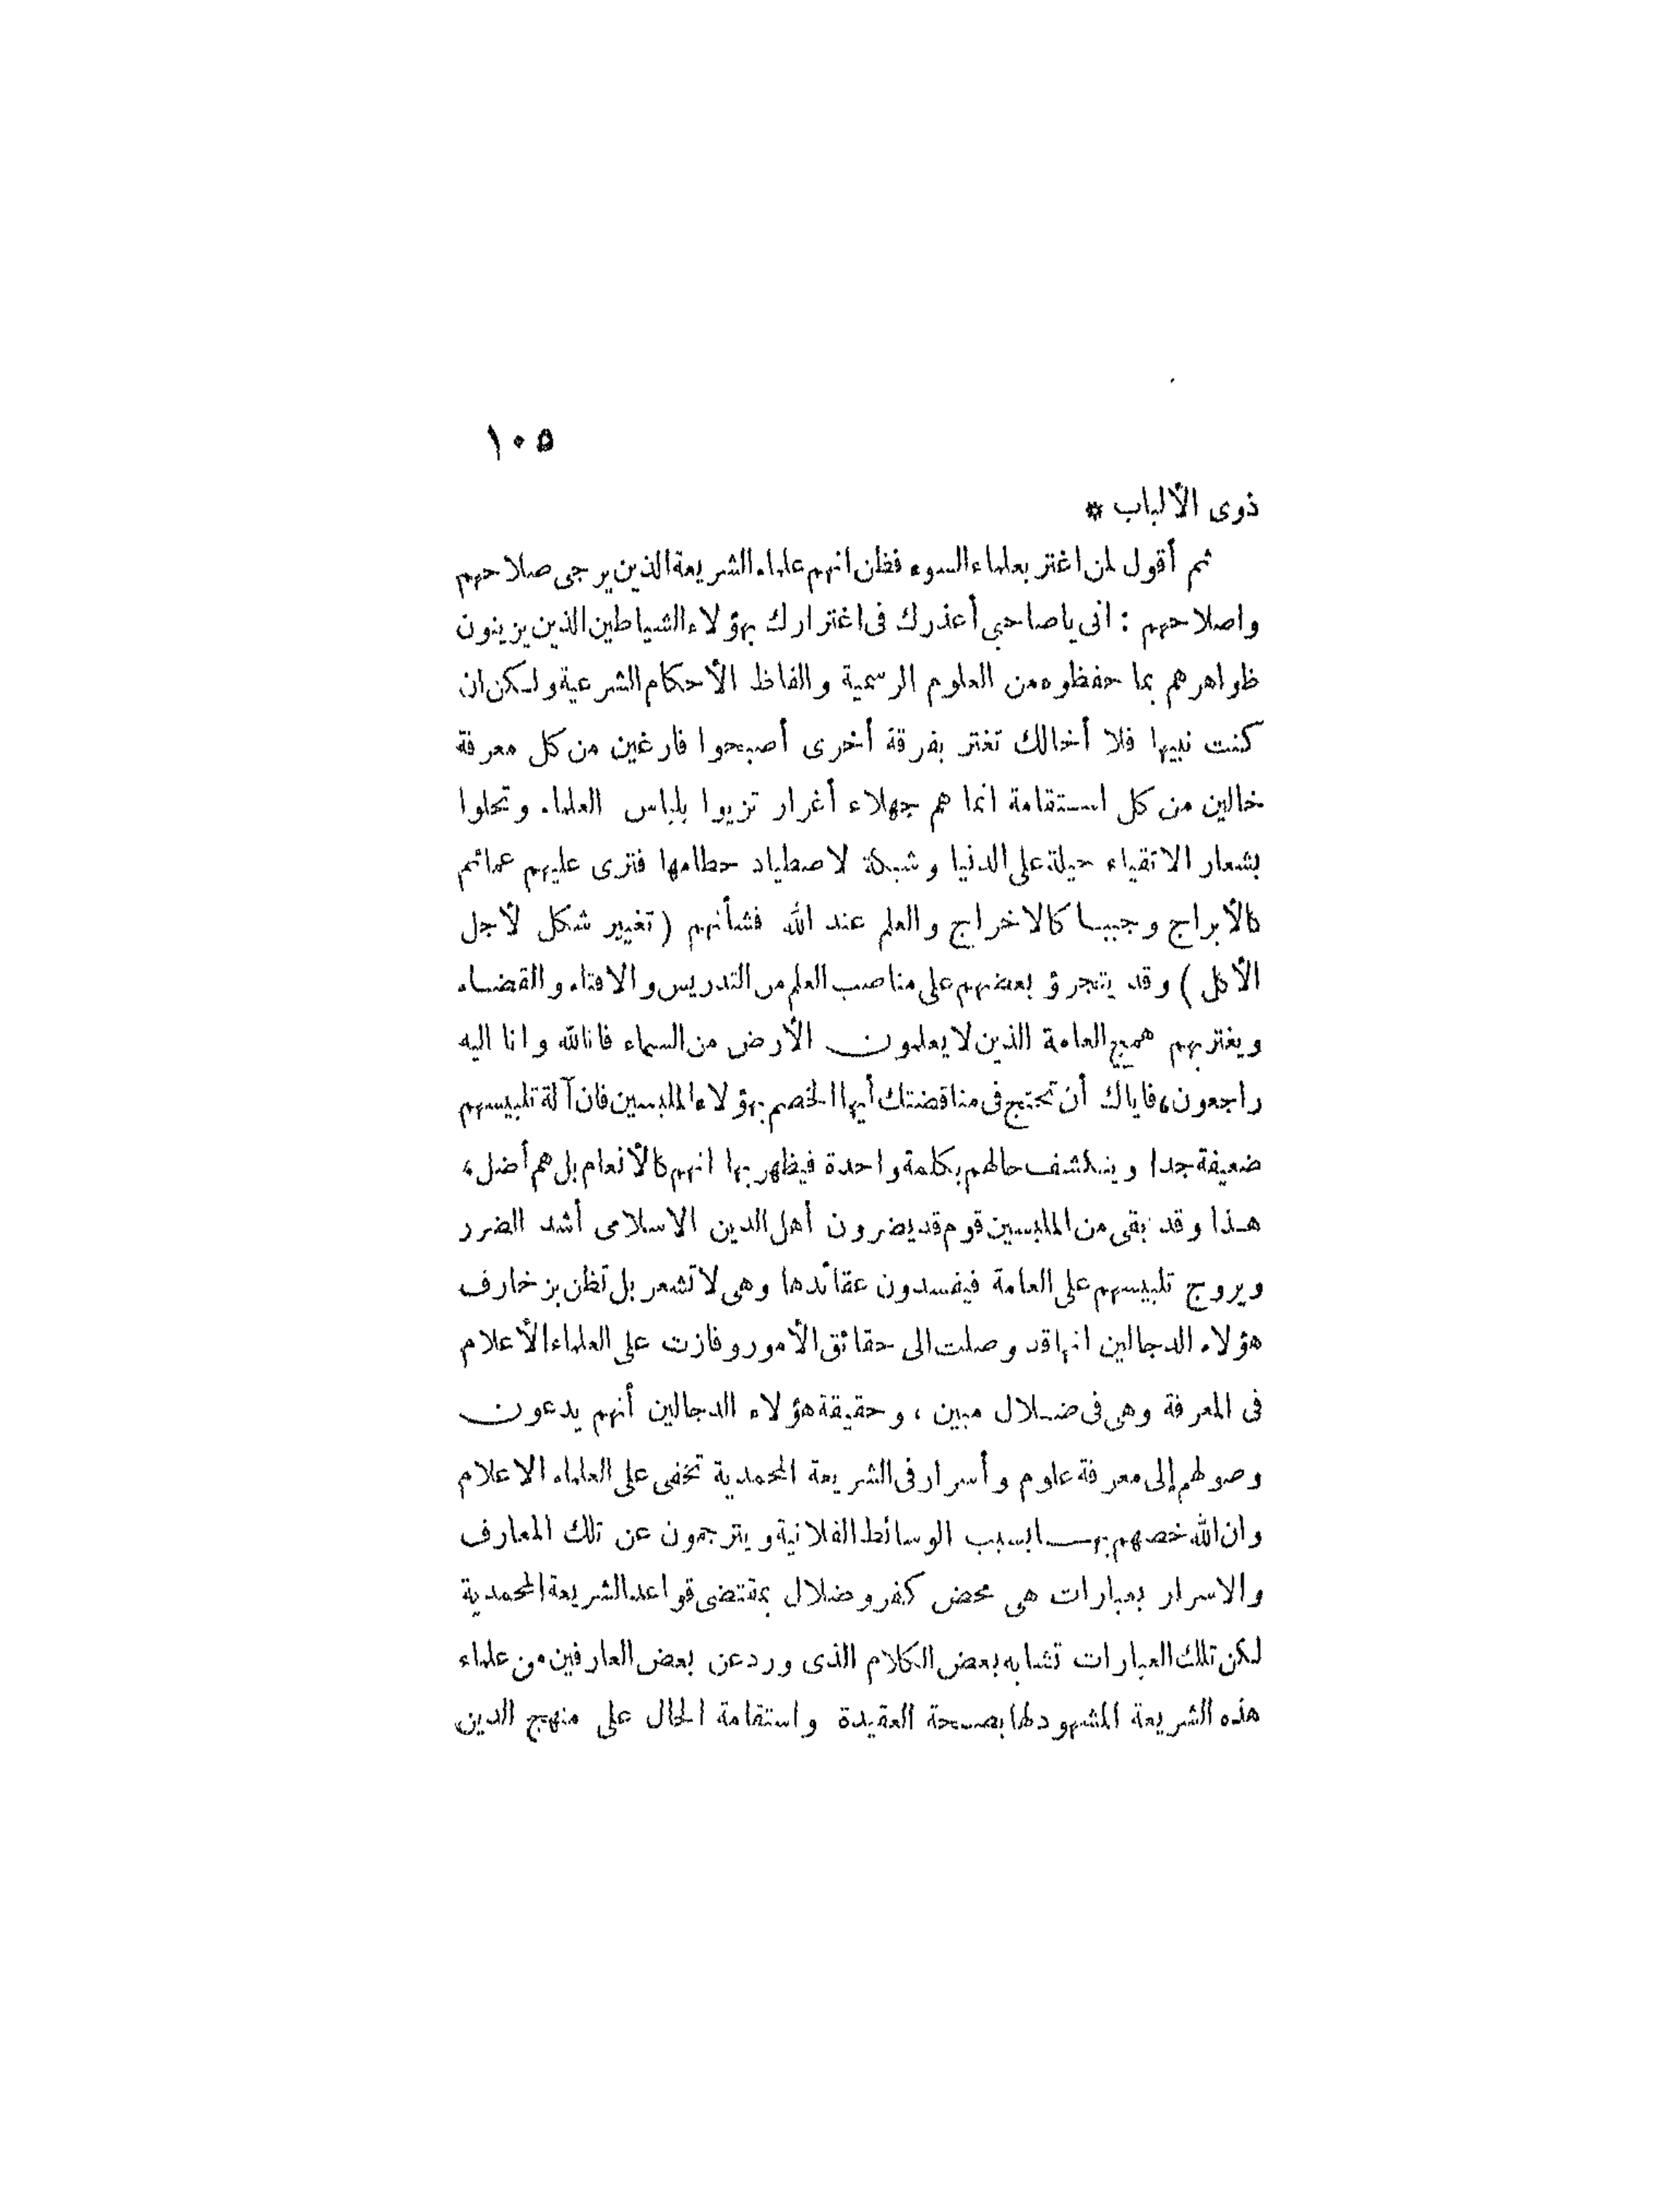 ١٠٥
ذوى الألباب *
ثم أقول لمن اغتر بعلماء السوء فظن انهم علماء الشريعة الذين يرجى صلاحهم
واصلاحهم : انى ياصاحبى أعذرك فى اغترارك بهؤلاء الشياطين الذين يزينون
ظواهرهم بما حفظوه من العلوم الرسمية والفاظ الأحكام الشرعية ولكن ان
كنت نبيها فلا أخالك تغتر بفرقة أخرى أصبحوا فارغين من كل معرفة
خالين من كل استقامة انما هم جهلاء أغرار تزيوا بلباس العلماء وتحلوا
بشعار الاتقياء حيلة على الدنيا وشبكة لاصطياد حطامها فترى عليهم عمائم
كالأبراج وجببا كالاخراج والعلم عند الله فشأنهم (تغيير شكل لأجل
الأكل) وقد يتجرؤ بعضهم على مناصب العلم من التدريس والافتاء والقضاء
ويغتر بهم هميج العامة الذين لا يعلمون الأرض من السماء فانالله وانا اليه
راجعون، فاياك أن تحتج فى مناقضتك أيها الخصم بهؤلاء الملبسين فان آلة تلبيسهم
ضعيفة جدا وينكشف حالهم بكلمة واحدة فيظهر بها انهم كالأنعام بل هم أضل،
هذا وقد بقى من الملبسين قوم قد يضرون أهل الدين الاسلامى أشد الضرر
ويروج تلبيسهم على العامة فيفسدون عقائدها وهى لا تشعر بل تظن بزخارف
هؤلاء الدجالين انها قد وصلت الى حقائق الأمور وفازت على العلماء الأعلام
فى المعرفة وهى فى ضلال مبين ، وحقيقة هؤلاء الدجالين أنهم يدعون
وصولهم إلى معرفة علوم وأسرار فى الشريعة المحمدية تخفى على العلماء الاعلام
وان الله خصهم بها بسبب الوسائط الفلانية ويترجمون عن تلك المعارف
والاسرار بعبارات هى محض كفر وضلال بمقتضى قواعد الشريعة المحمدية
لكن تلك العبارات تشابه بعض الكلام الذى ورد عن بعض العارفين من علماء
هذه الشريعة المشهود لها بصحة العقيدة واستقامة الحال على منهج الدين